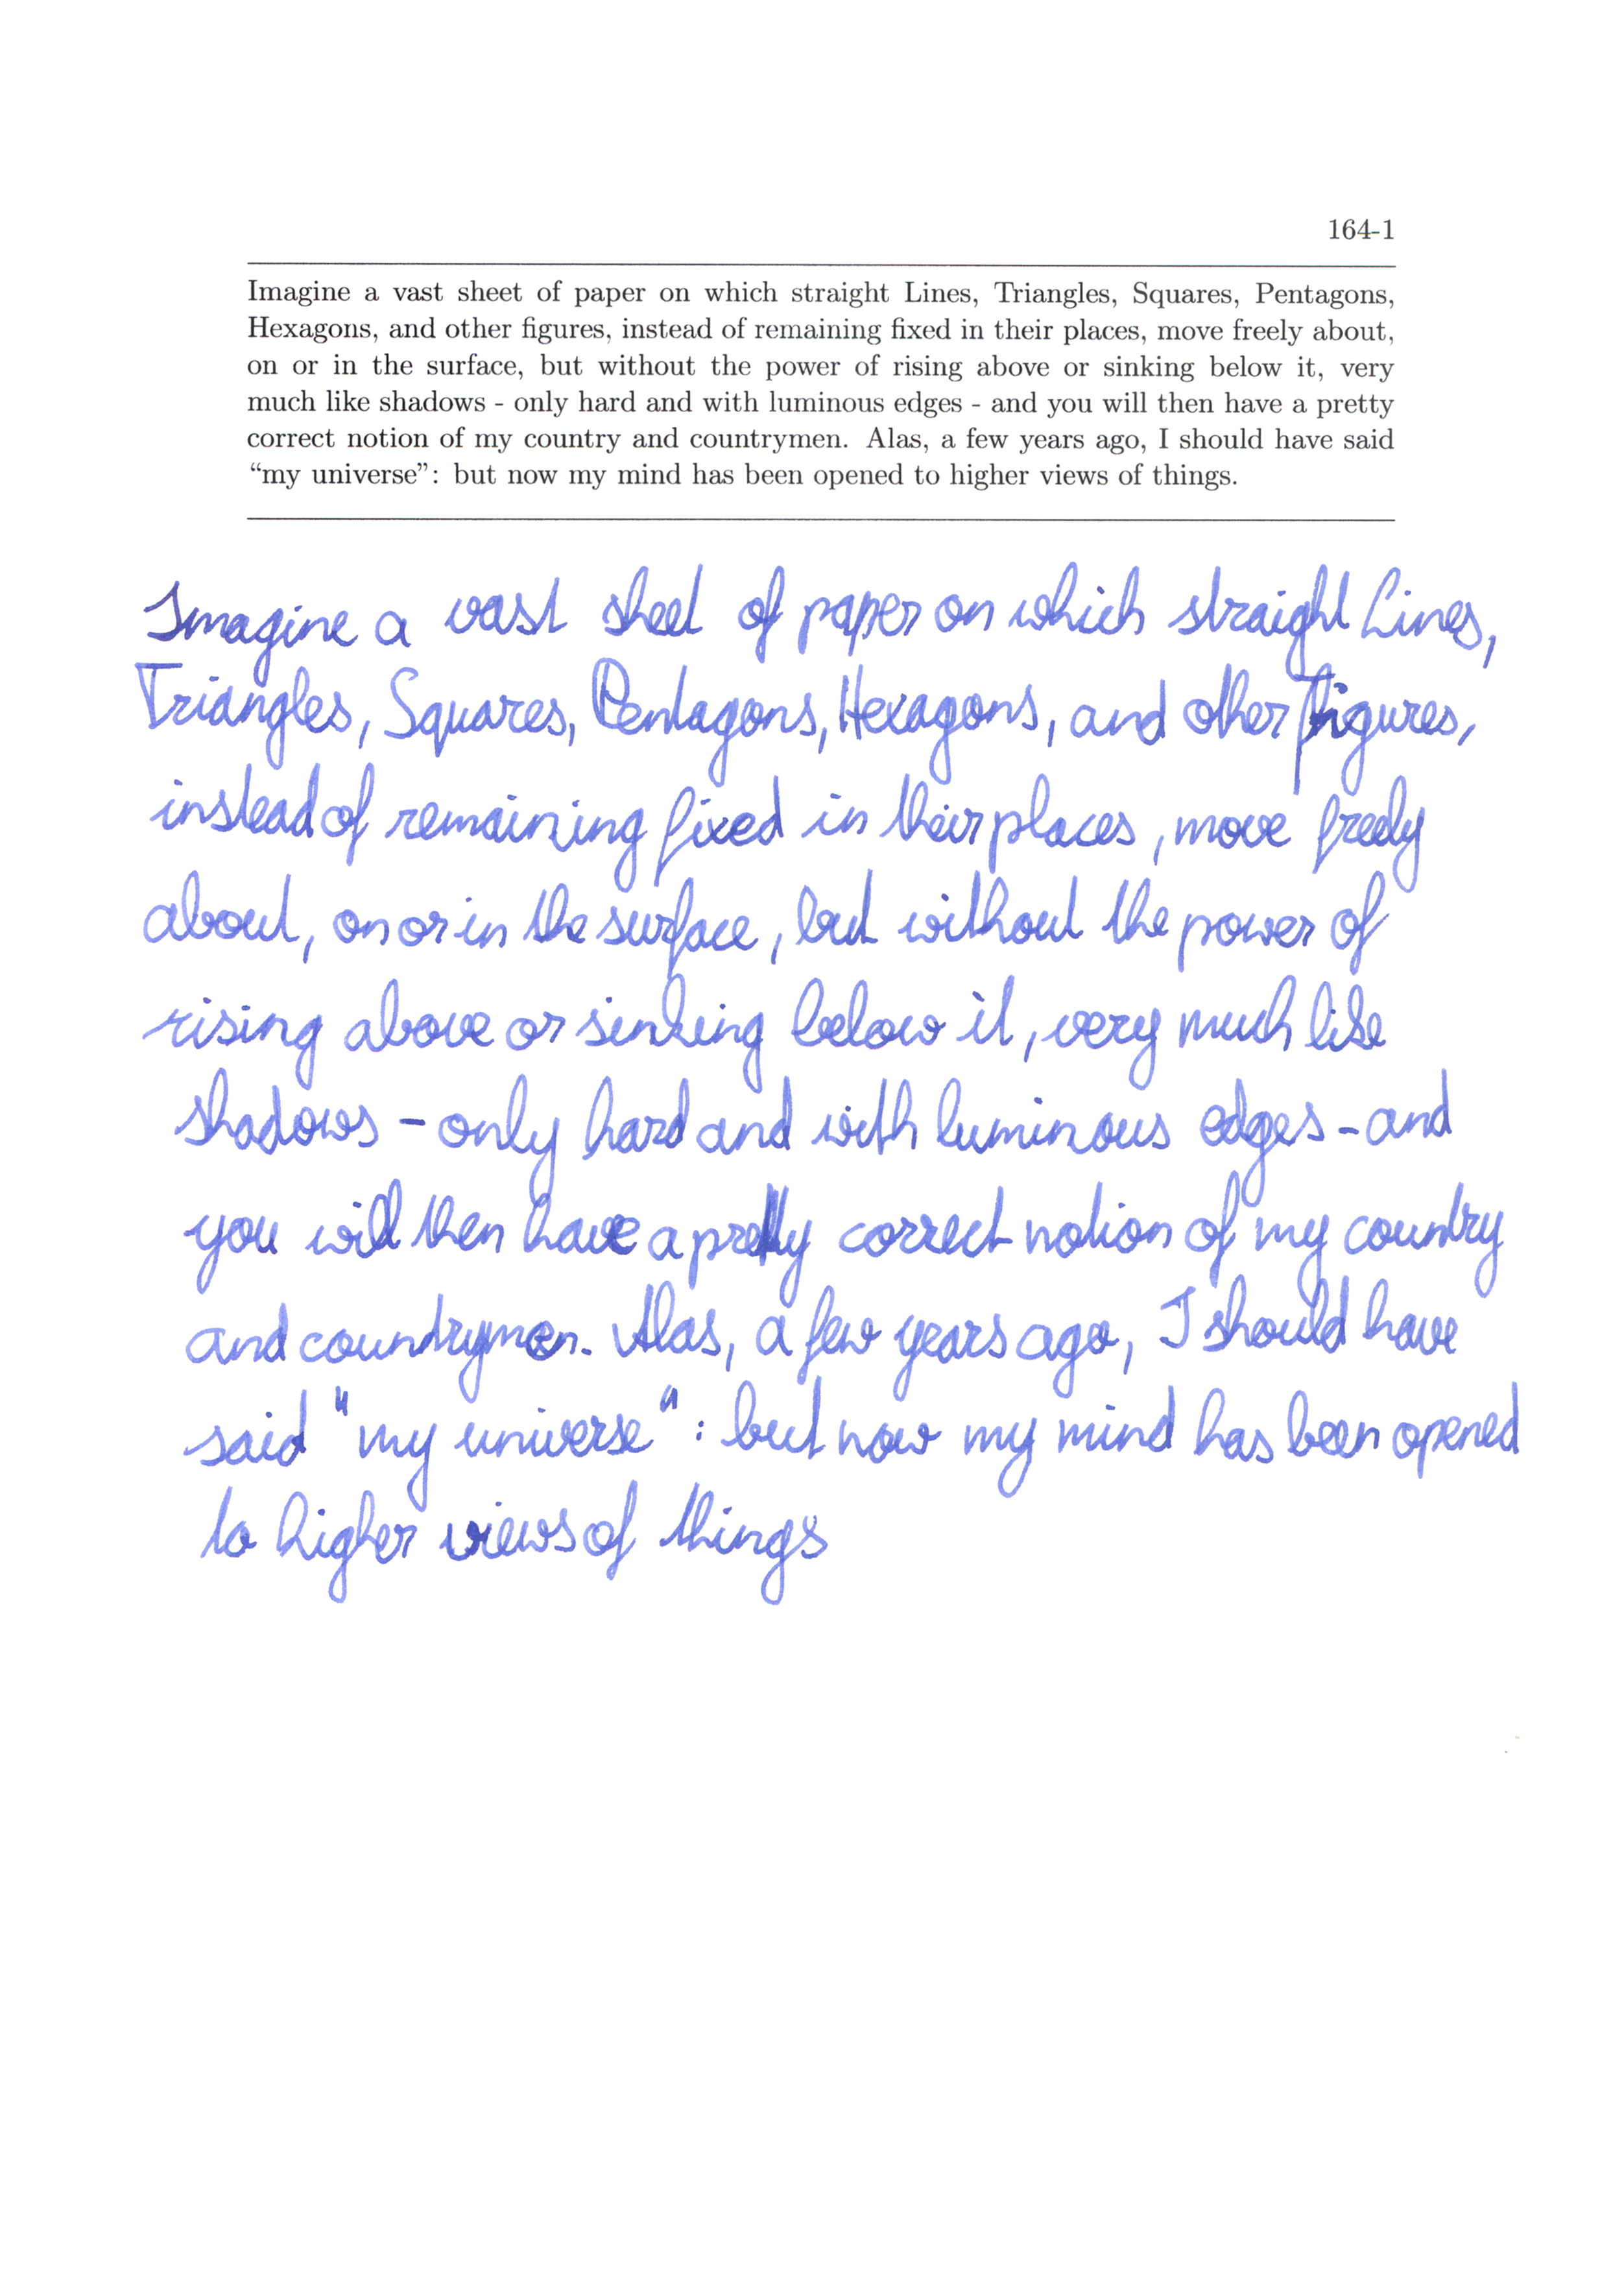 164-1
Imagine a vast sheet of paper on which straight Lines, Triangles, Squares, Pentagons,
Hexagons, and other figures, instead of remaining fixed in their places, move freely about,
on or in the surface, but without the power of rising above or sinking below it, very
much like shadows - only hard and with luminous edges - and you will then have a pretty
correct notion of my country and countrymen. Alas, a few years ago, I should have said
“my universe”: but now my mind has been opened to higher views of things.
Imagine a vast sheet of paper on which straight Lines,
Triangles, Squares, Pentagons, Hexagons, and other figures,
instead of remaining fixed in their places, move freely
about, on or in the surface, but without the power of
rising above or sinking below it, very much like
shadows - only hard and with luminous edges - and
you will then have a pretty correct notion of my country
and countrymen. Alas, a few years ago, I should have
said "my universe": but now my mind has been opened
to higher views of things